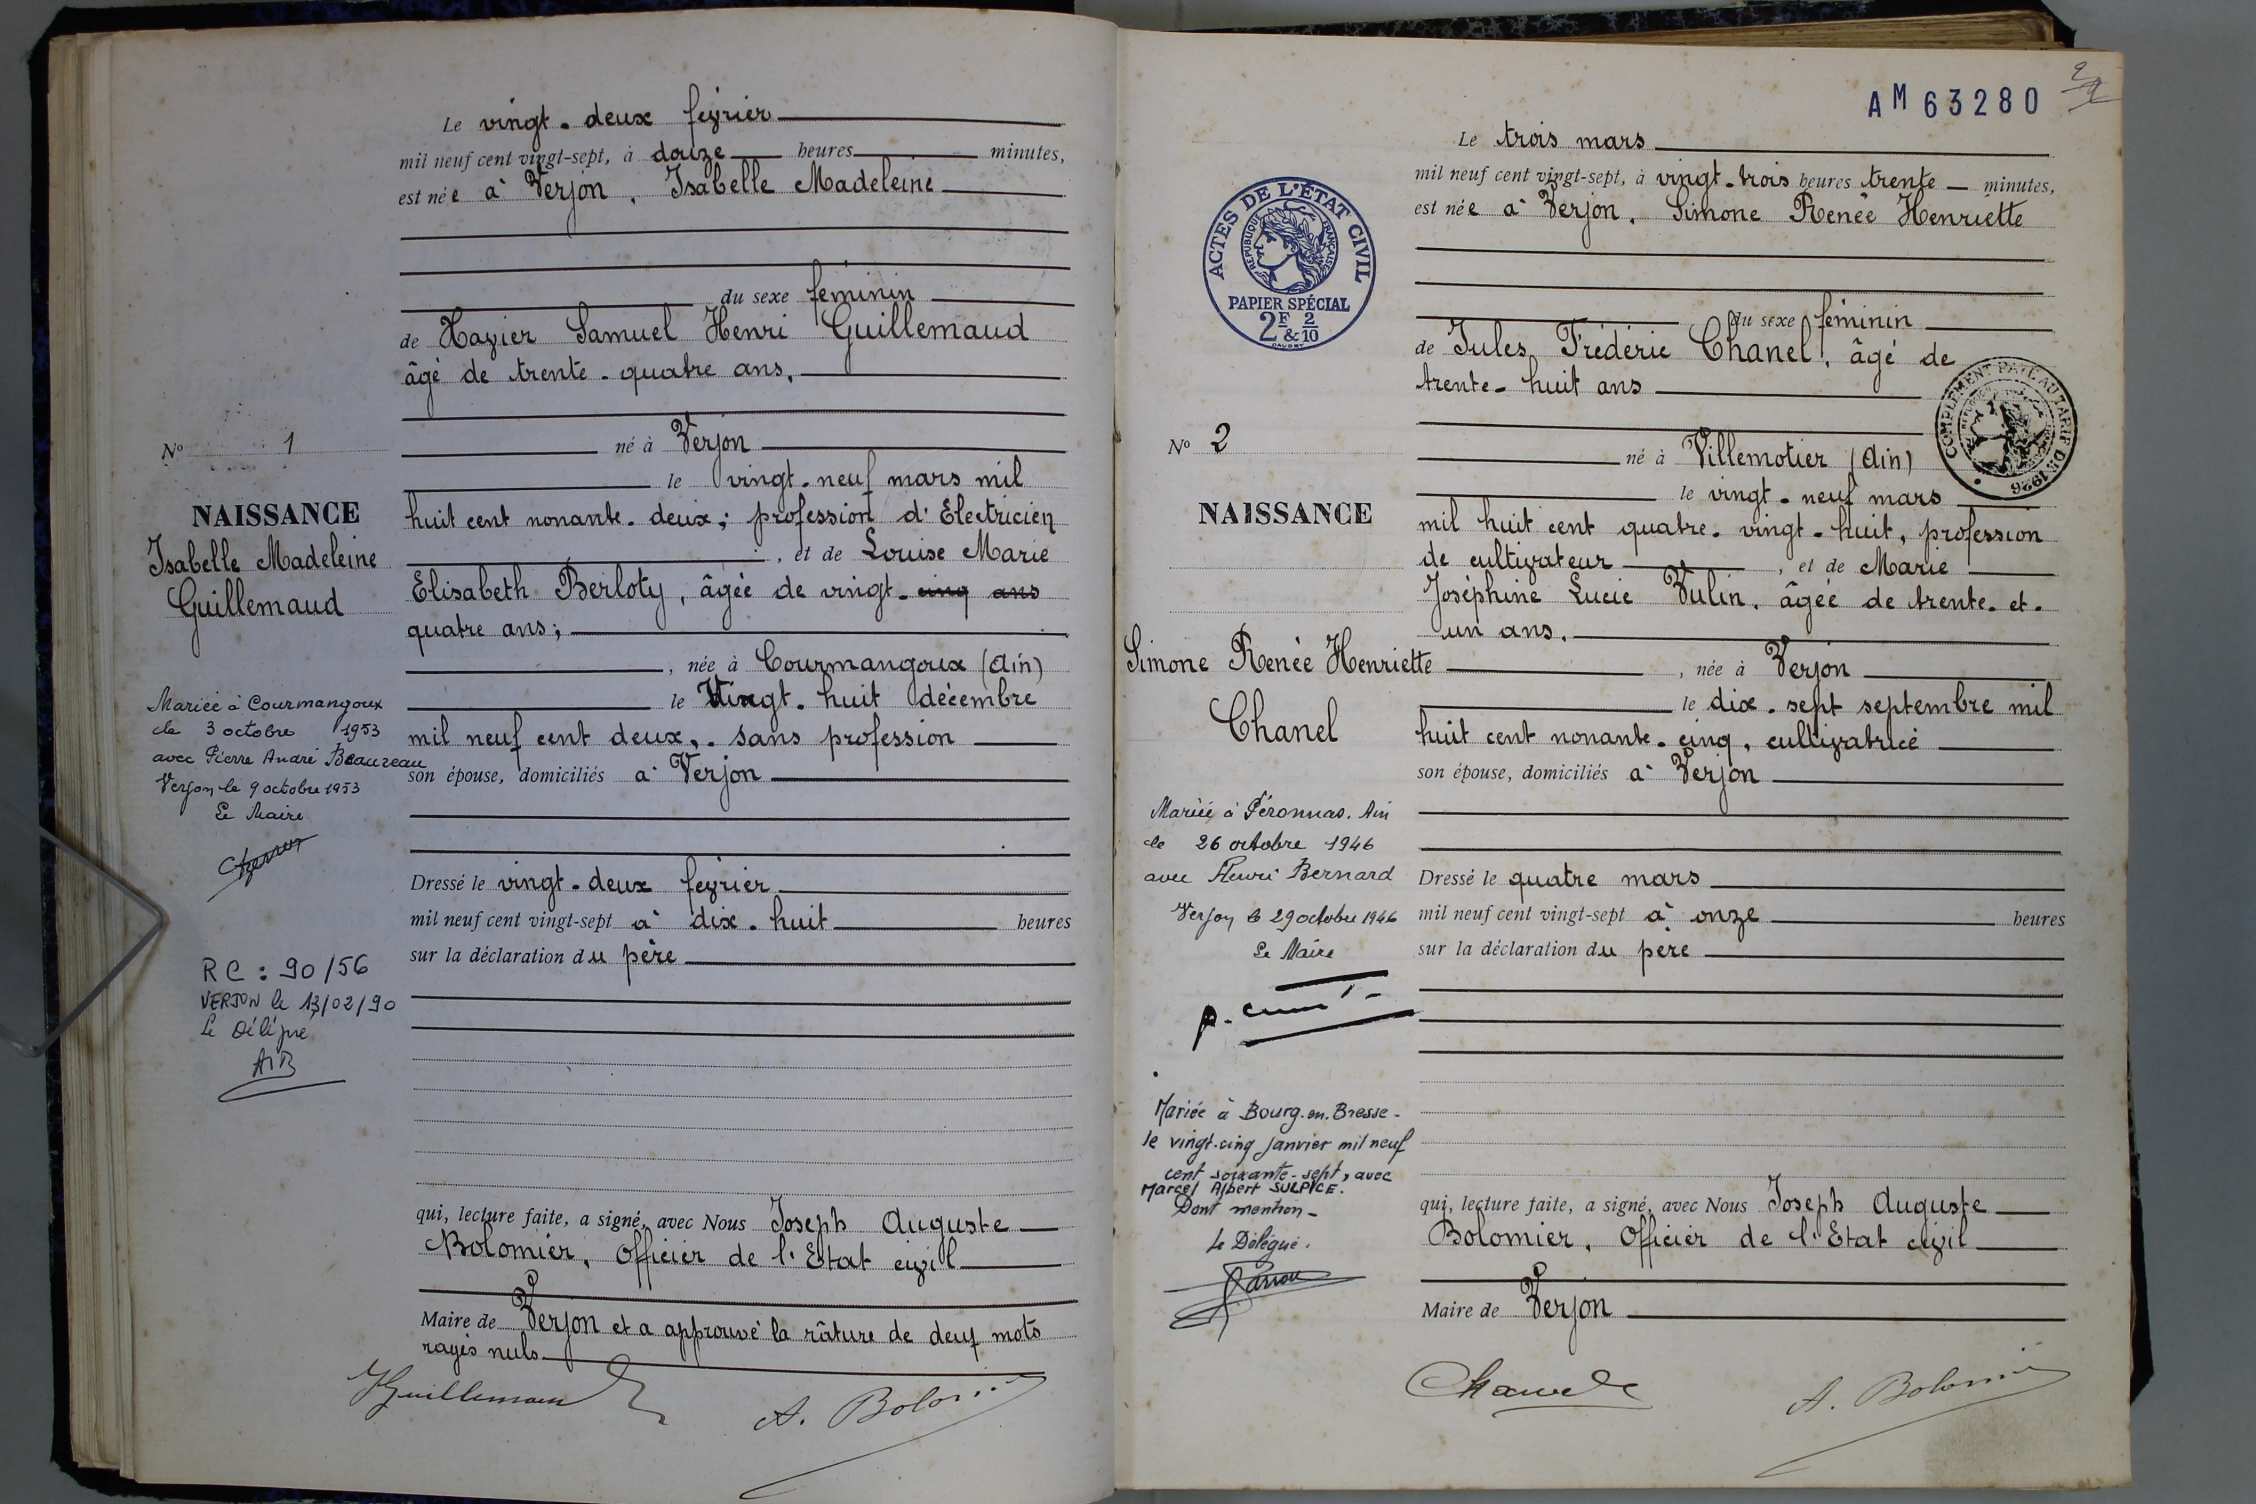 Le vingt-deux février
mil neuf cent vingt-sept, à douze heures minutes,
est née à Verjon, Isabelle Madeleine
du sexe féminin
de Xavier Samuel Henri Guillemaud
âgé de trente-quatre ans,
né à Verjon
le vingt-neuf mars mil
huit cent nonante-deux; profession d'Electricien
, et de Louise Marie
Elisabeth Berloty, âgée de vingt-cinq ans
quatre ans;
, née à Courmangoux (Ain)
le Vingt-huit décembre
mil neuf cent deux, sans profession
son épouse, domiciliés à Verjon
Dressé le vingt-deux février
mil neuf cent vingt-sept à dix-huit heures
sur la déclaration du père
qui, lecture faite, a signé, avec Nous Joseph Auguste
Bolomier, Officier de l'Etat civil
Maire de Verjon et a approuvé la râture de deux mots
rayés nuls
Guillemaud
A. Bolomier
No 1
NAISSANCE
Isabelle Madeleine
Guillemaud
Mariée à Courmangoux
le 3 octobre 1953
avec Pierre André Beauzeau
Verjon le 9 octobre 1953
Le Maire
RC : 90/56
VERJON le 13/02/90
Le Délégué
AM 63280
2
ACTES DE L'ÉTAT CIVIL
RÉPUBLIQUE FRANÇAISE
PAPIER SPÉCIAL
2F & 2/10
COMPLÉMENT PAYÉ AU TARIF DE 1926
Le trois mars
mil neuf cent vingt-sept, à vingt-trois heures trente minutes,
est née à Verjon, Simone Renée Henriette
du sexe féminin
de Jules Frédéric Chanel, âgé de
trente-huit ans
né à Villemotier (Ain)
le vingt-neuf mars
mil huit cent quatre-vingt-huit, profession
de cultivateur, et de Marie
Joséphine Lucie Vulin, âgée de trente-et-
un ans,
, née à Verjon
le dix-sept septembre mil
huit cent nonante-cinq, cultivatrice
son épouse, domiciliés à Verjon
Dressé le quatre mars
mil neuf cent vingt-sept à onze heures
sur la déclaration du père
qui, lecture faite, a signé, avec Nous Joseph Auguste
Bolomier, Officier de l'Etat civil
Maire de Verjon
Chanel
A. Bolomier
No 2
NAISSANCE
Simone Renée Henriette
Chanel
Mariée à Péronnas, Ain
le 26 octobre 1946
avec Henri Bernard
Verjon le 29 octobre 1946
Le Maire
Mariée à Bourg-en-Bresse-
le vingt-cinq Janvier mil neuf
cent soixante-sept, avec
Marcel Albert SULPICE.
Dont mention-
Le Délégué.